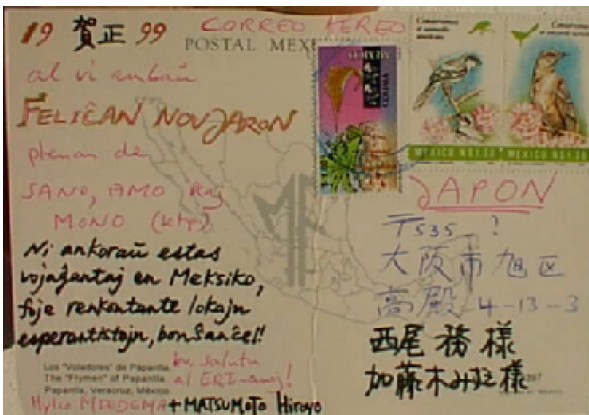 19 賀正 99
CORREO AEREO
POSTAL
al vi ambaŭ
FELIĈAN NOVJARON
plenan de
SANO, AMO kaj
MONO (ktp)
Ni ankoraŭ estas
vojaĝantaj en Meksiko,
foje renkontante lokajn
esperantistojn, bonŝance!!
Los "Voladores" de Papantla.
The "Flymen" of Papantla.
Papantla, Veracruz, México
al ERT-anoj!
+ MATSUMOTO Hiroyo
COLIMA
MEXICO
MEXICO
JAPON
〒535 ?
大阪市旭区
高殿 4-13-3
西尾 務 様